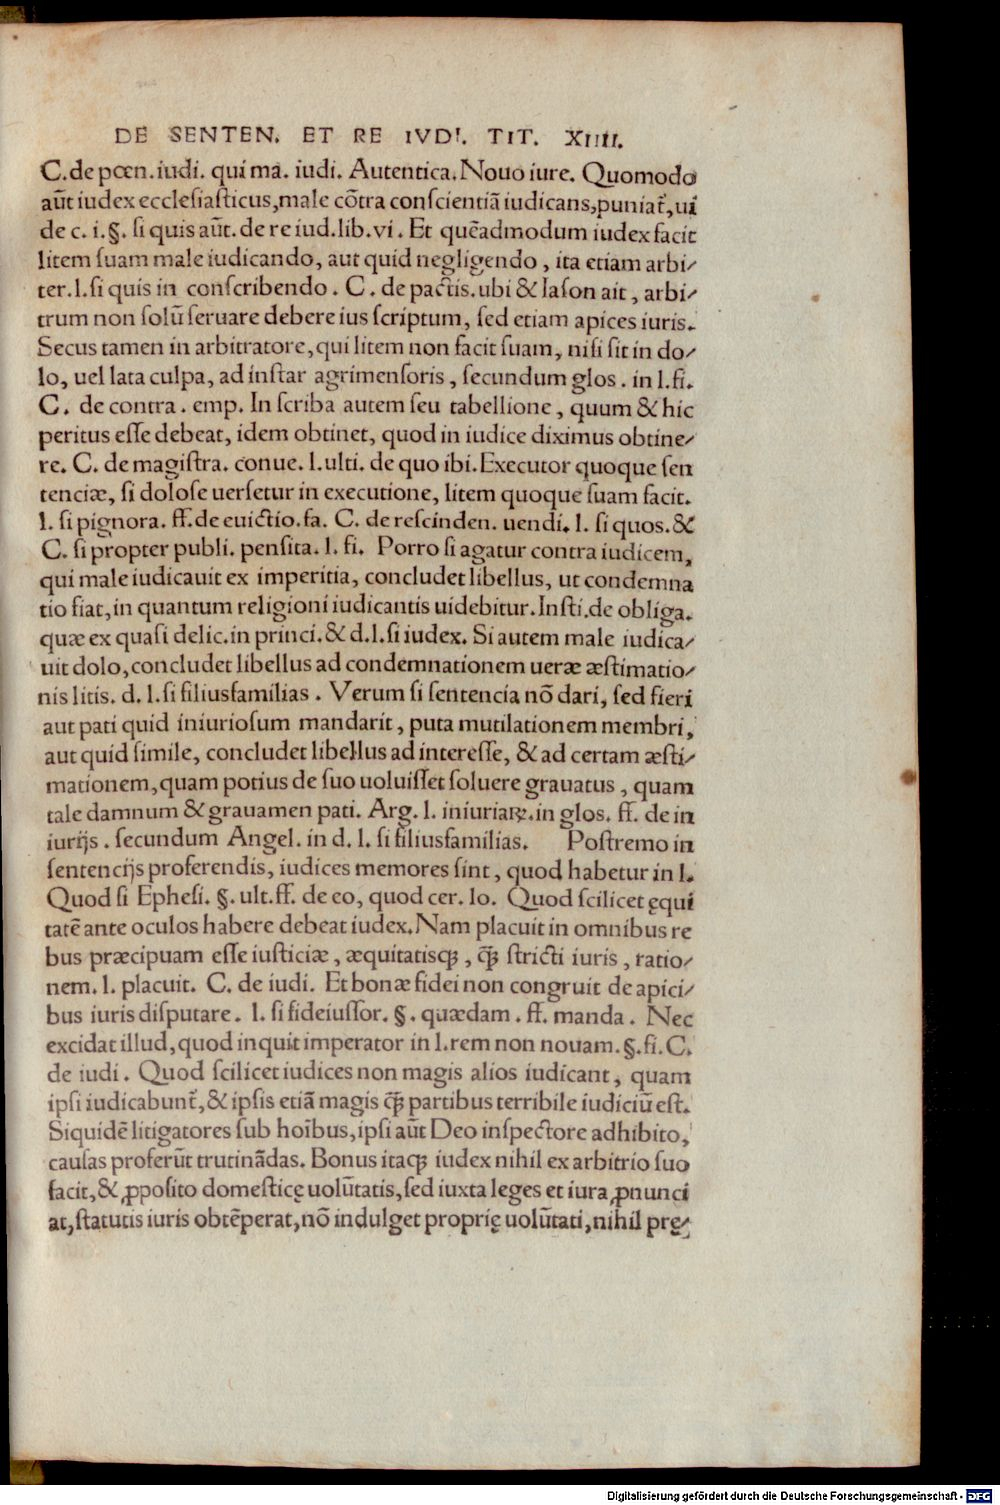 DE SENTEN. ET RE IVDI. TIT. XIIII.
C. de pœn. iudi. qui ma. iudi. Autentica. Nouo iure. Quomodo
aūt iudex ecclesiasticus, male cōtra conscientiā iudicans, puniat᷑, ui
de c. i. §. si quis aūt. de re iud. lib. vi. Et quēadmodum iudex facit
litem suam male iudicando, aut quid negligendo, ita etiam arbi⸗
ter. l. si quis in conscribendo. C. de pactis. ubi & Iason ait, arbi⸗
trum non solū seruare debere ius scriptum, sed etiam apices iuris.
Secus tamen in arbitratore, qui litem non facit suam, nisi sit in do⸗
lo, uel lata culpa, ad instar agrimensoris, secundum glos. in l. fi.
C. de contra. emp. In scriba autem seu tabellione, quum & hic
peritus esse debeat, idem obtinet, quod in iudice diximus obtine⸗
re. C. de magistra. conue. l. ulti. de quo ibi. Executor quoque sen
tenciæ, si dolose uersetur in executione, litem quoque suam facit.
l. si pignora. ff. de euictio. fa. C. de rescinden. uendi. l. si quos. &
C. si propter publi. pensita. l. fi. Porro si agatur contra iudicem,
qui male iudicauit ex imperitia, concludet libellus, ut condemna
tio fiat, in quantum religioni iudicantis uidebitur. Insti. de obliga.
quæ ex quasi delic. in princi. & d. l. si iudex. Si autem male iudica⸗
uit dolo, concludet libellus ad condemnationem ueræ æstimatio⸗
nis litis. d. l. si filiusfamilias. Verum si sentencia nō dari, sed fieri
aut pati quid iniuriosum mandarit, puta mutilationem membri,
aut quid simile, concludet libellus ad interesse, & ad certam æsti⸗
mationem, quam potius de suo uoluisset soluere grauatus, quam
tale damnum & grauamen pati. Arg. l. iniuriaꝝ. in glos. ff. de in
iurijs. secundum Angel. in d. l. si filiusfamilias. Postremo in
sentencijs proferendis, iudices memores sint, quod habetur in l.
Quod si Ephesi. §. ult. ff. de eo, quod cer. lo. Quod scilicet ęqui
tatē ante oculos habere debeat iudex. Nam placuit in omnibus re
bus præcipuam esse iusticiæ, æquitatisqꝫ, q̄ꝫ stricti iuris, ratio⸗
nem. l. placuit. C. de iudi. Et bonæ fidei non congruit de apici⸗
bus iuris disputare. l. si fideiussor. §. quædam. ff. manda. Nec
excidat illud, quod inquit imperator in l. rem non nouam. §. fi. C.
de iudi. Quod scilicet iudices non magis alios iudicant, quam
ipsi iudicabunt᷑, & ipsis etiā magis q̄ꝫ partibus terribile iudiciū est.
Siquidē litigatores sub hoībus, ipsi aūt Deo inspectore adhibito,
causas proferūt trutinādas. Bonus itaqꝫ iudex nihil ex arbitrio suo
facit, & ꝓposito domesticę uolūtatis, sed iuxta leges et iura ꝓnunci
at, statutis iuris obtēperat, nō indulget proprię uolūtati, nihil prę⸗
Digitalisierung gefördert durch die Deutsche Forschungsgemeinschaft - DFG